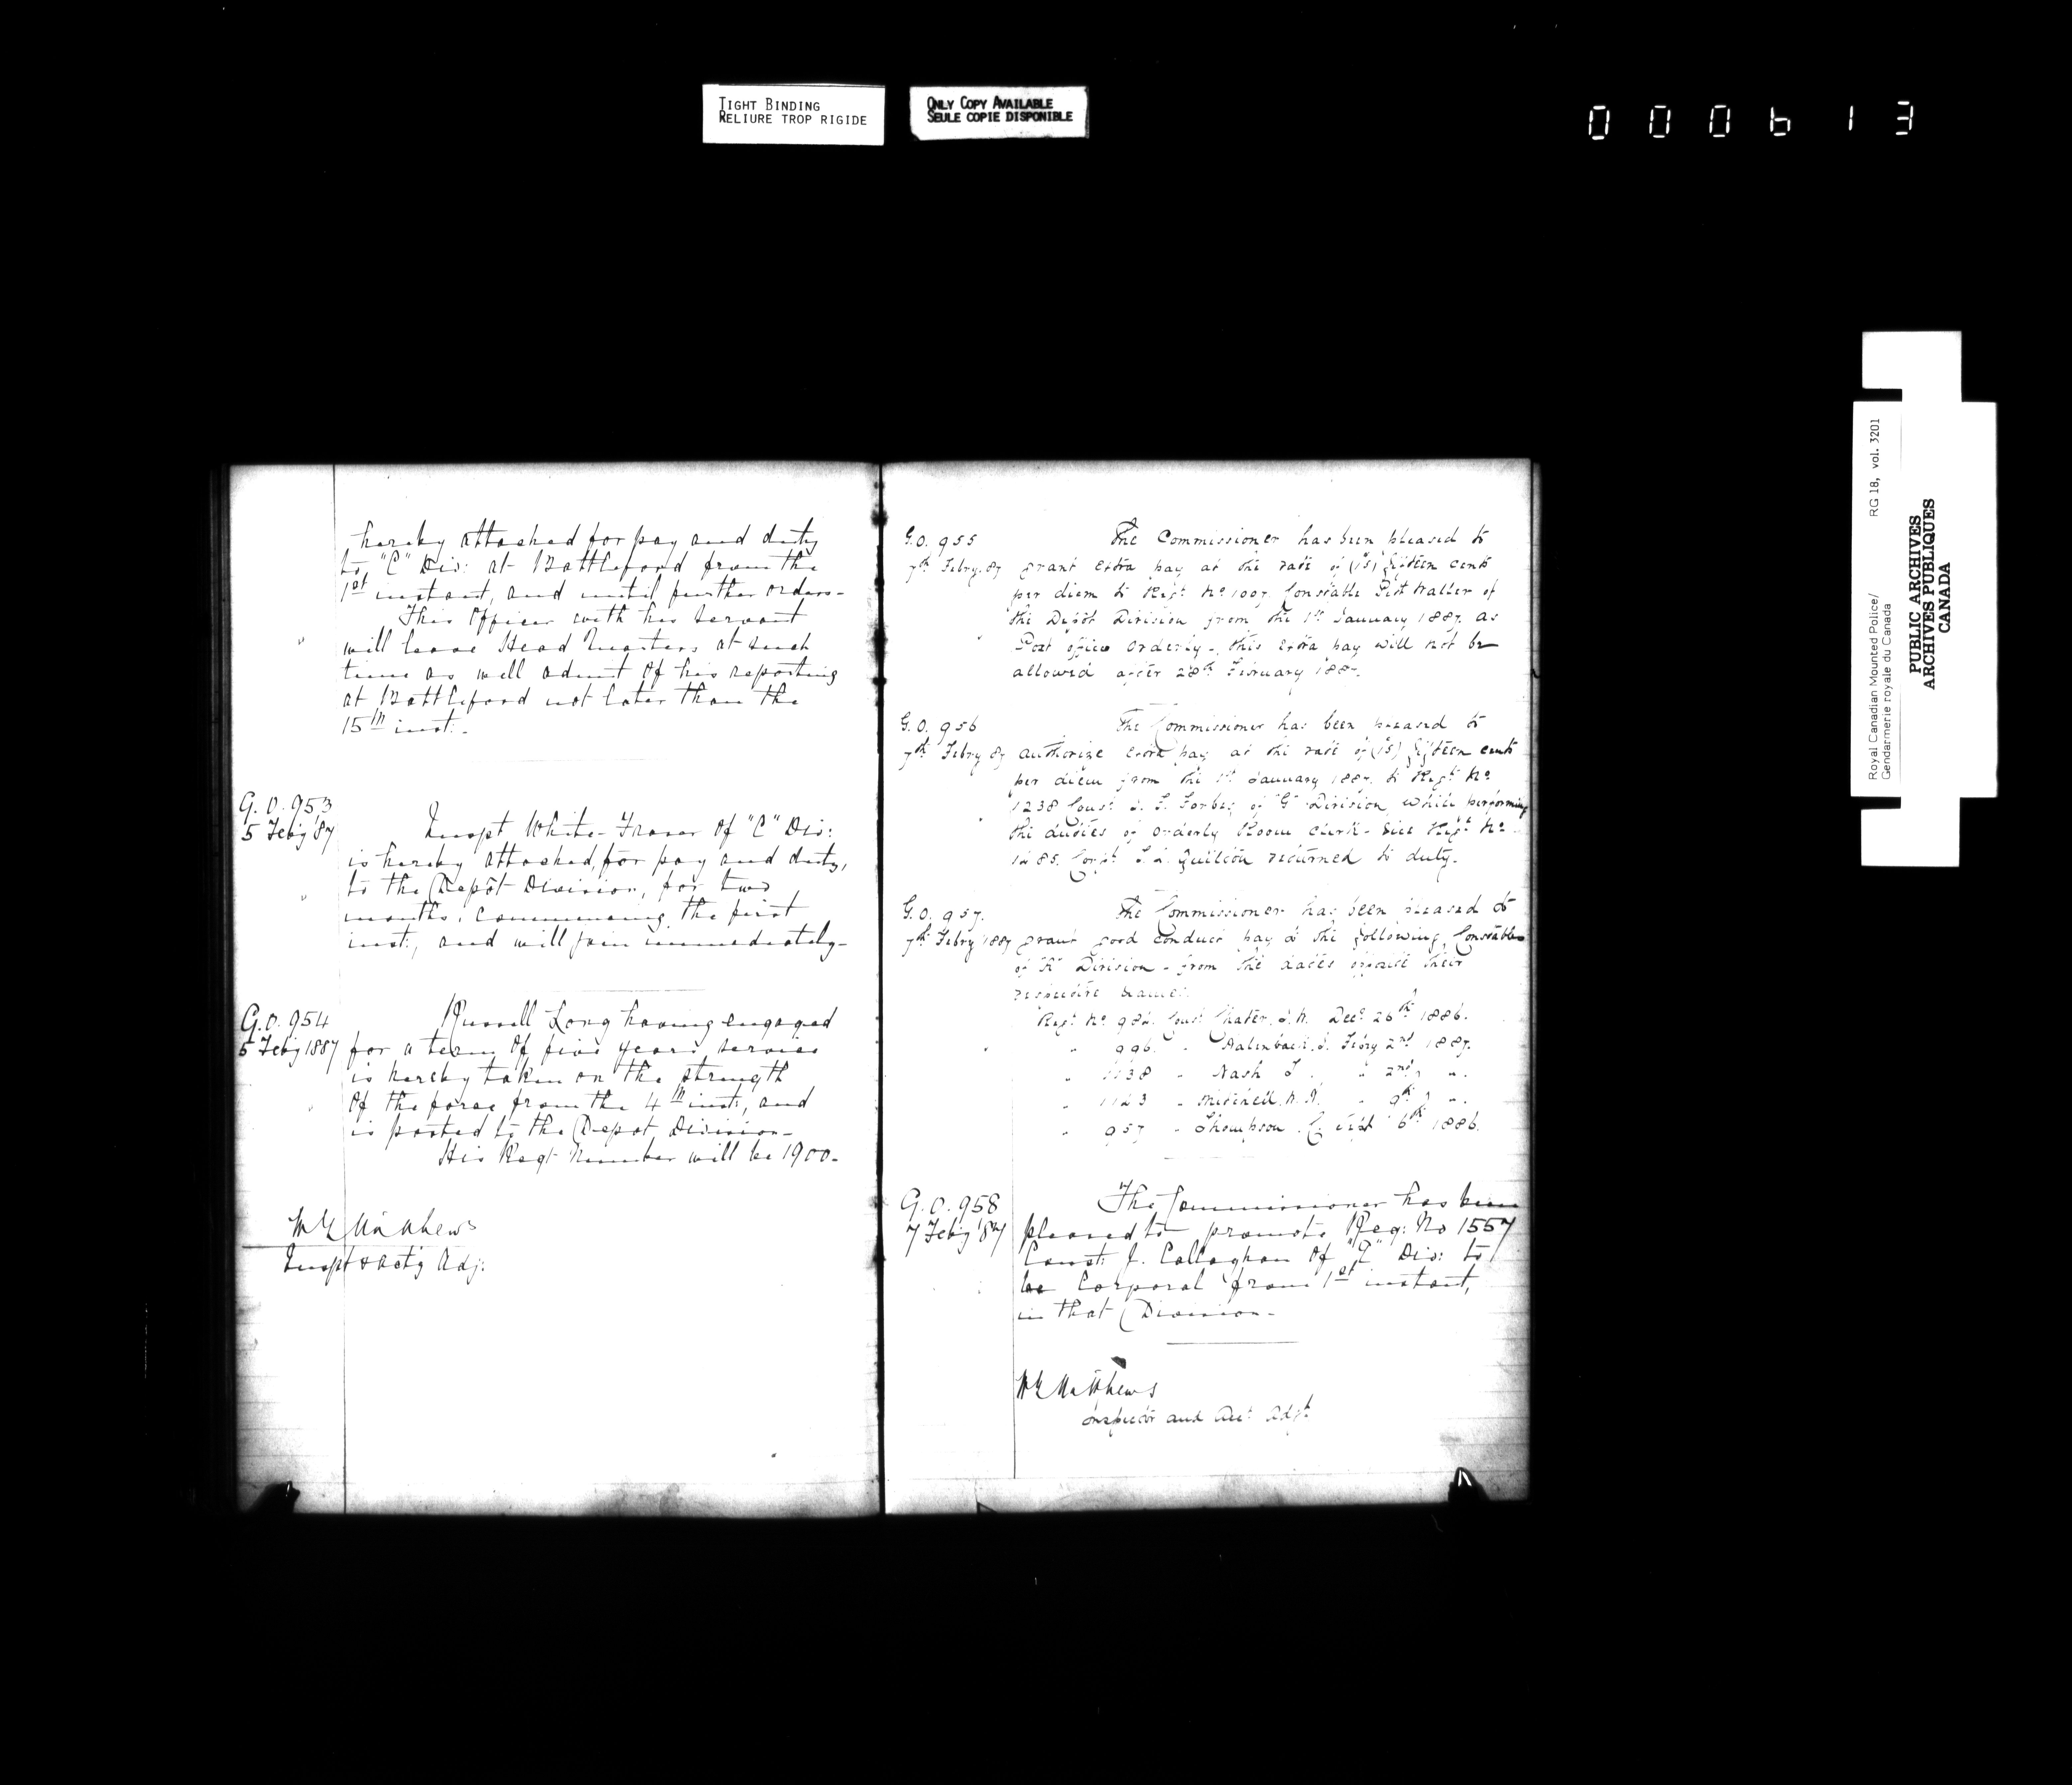 TIGHT BINDING
RELIURE TROP RIGIDE
ONLY COPY AVAILABLE
SEULE COPIE DISPONIBLE
000613
hereby attached for pay and duty
to "C" Div: at Battleford from the
1st instant, and until further orders-
This Officer with his servant
will leave Head Quarters at such
time as will admit of his reporting
at Battleford not later than the
15th inst:-
G.O. 953
5 Feby '87
Inspt White-Fraser of "C" Div:
is hereby attached, for pay and duty,
to the Depôt Division, for two
months, commencing the first
inst:, and will join immediately-
G.O. 954
5 Feby 1887
Russell Long having engaged
for a term of five years service
is hereby taken on the strength
of the force from the 4th inst:, and
is posted to the Depot Division-
His Regt Number will be 1900-
Matthews
Inspt & actg Adj:
G.O. 955
7th Febry. 87
The Commissioner has been pleased to
grant extra pay at the rate of (15) fifteen cents
per diem to Regt No 1007 Constable of
the Depôt Division from the 1st January 1887. as
Post office Orderly-, this extra pay will not be
allowed after 28th February 188-.
G.O. 956
7th Febry 87
The Commissioner has been pleased to
authorize extra pay at the rate of (15) fifteen cents
per diem from the 1st January 1887. to Regt No
1238 Const. Forbes of "G" Division while performing
the duties of Orderly Room clerk - vice Regt No
1285. Corpt. returned to duty.
G.O. 957.
7th Febry 1887
The Commissioner has been pleased to
grant good conduct pay to the following Constables
of "K" Division - from the dates opposite their
respective names.
Regt No 982. Const Chater, Decr 26th 1886.
" 996. " Febry 2nd 1887.
" 1138 " Nash " 2nd "
" 1123 " Mitchell. " 9th "
" 957 " Thompson C. Sept 6th 1886.
G.O. 958
7 Feby '87
The Commissioner has been
pleased to promote Reg: No 1557
Const: J. Callaghan of Div: to
be Corporal from 1st instant,
in that Division-
Matthews
Inspector and Act. Adjt.
Royal Canadian Mounted Police/
Gendarmerie royale du Canada
RG 18, vol. 3201
PUBLIC ARCHIVES
ARCHIVES PUBLIQUES
CANADA